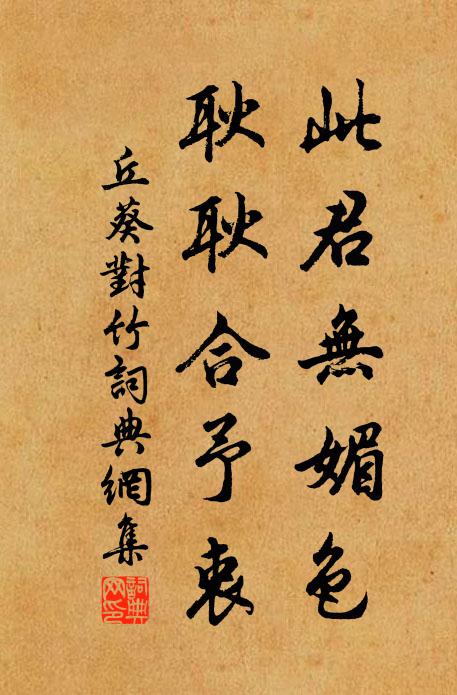 此君無媚色
耿耿合予衷
丘葵對竹詞典網集
詞典網印